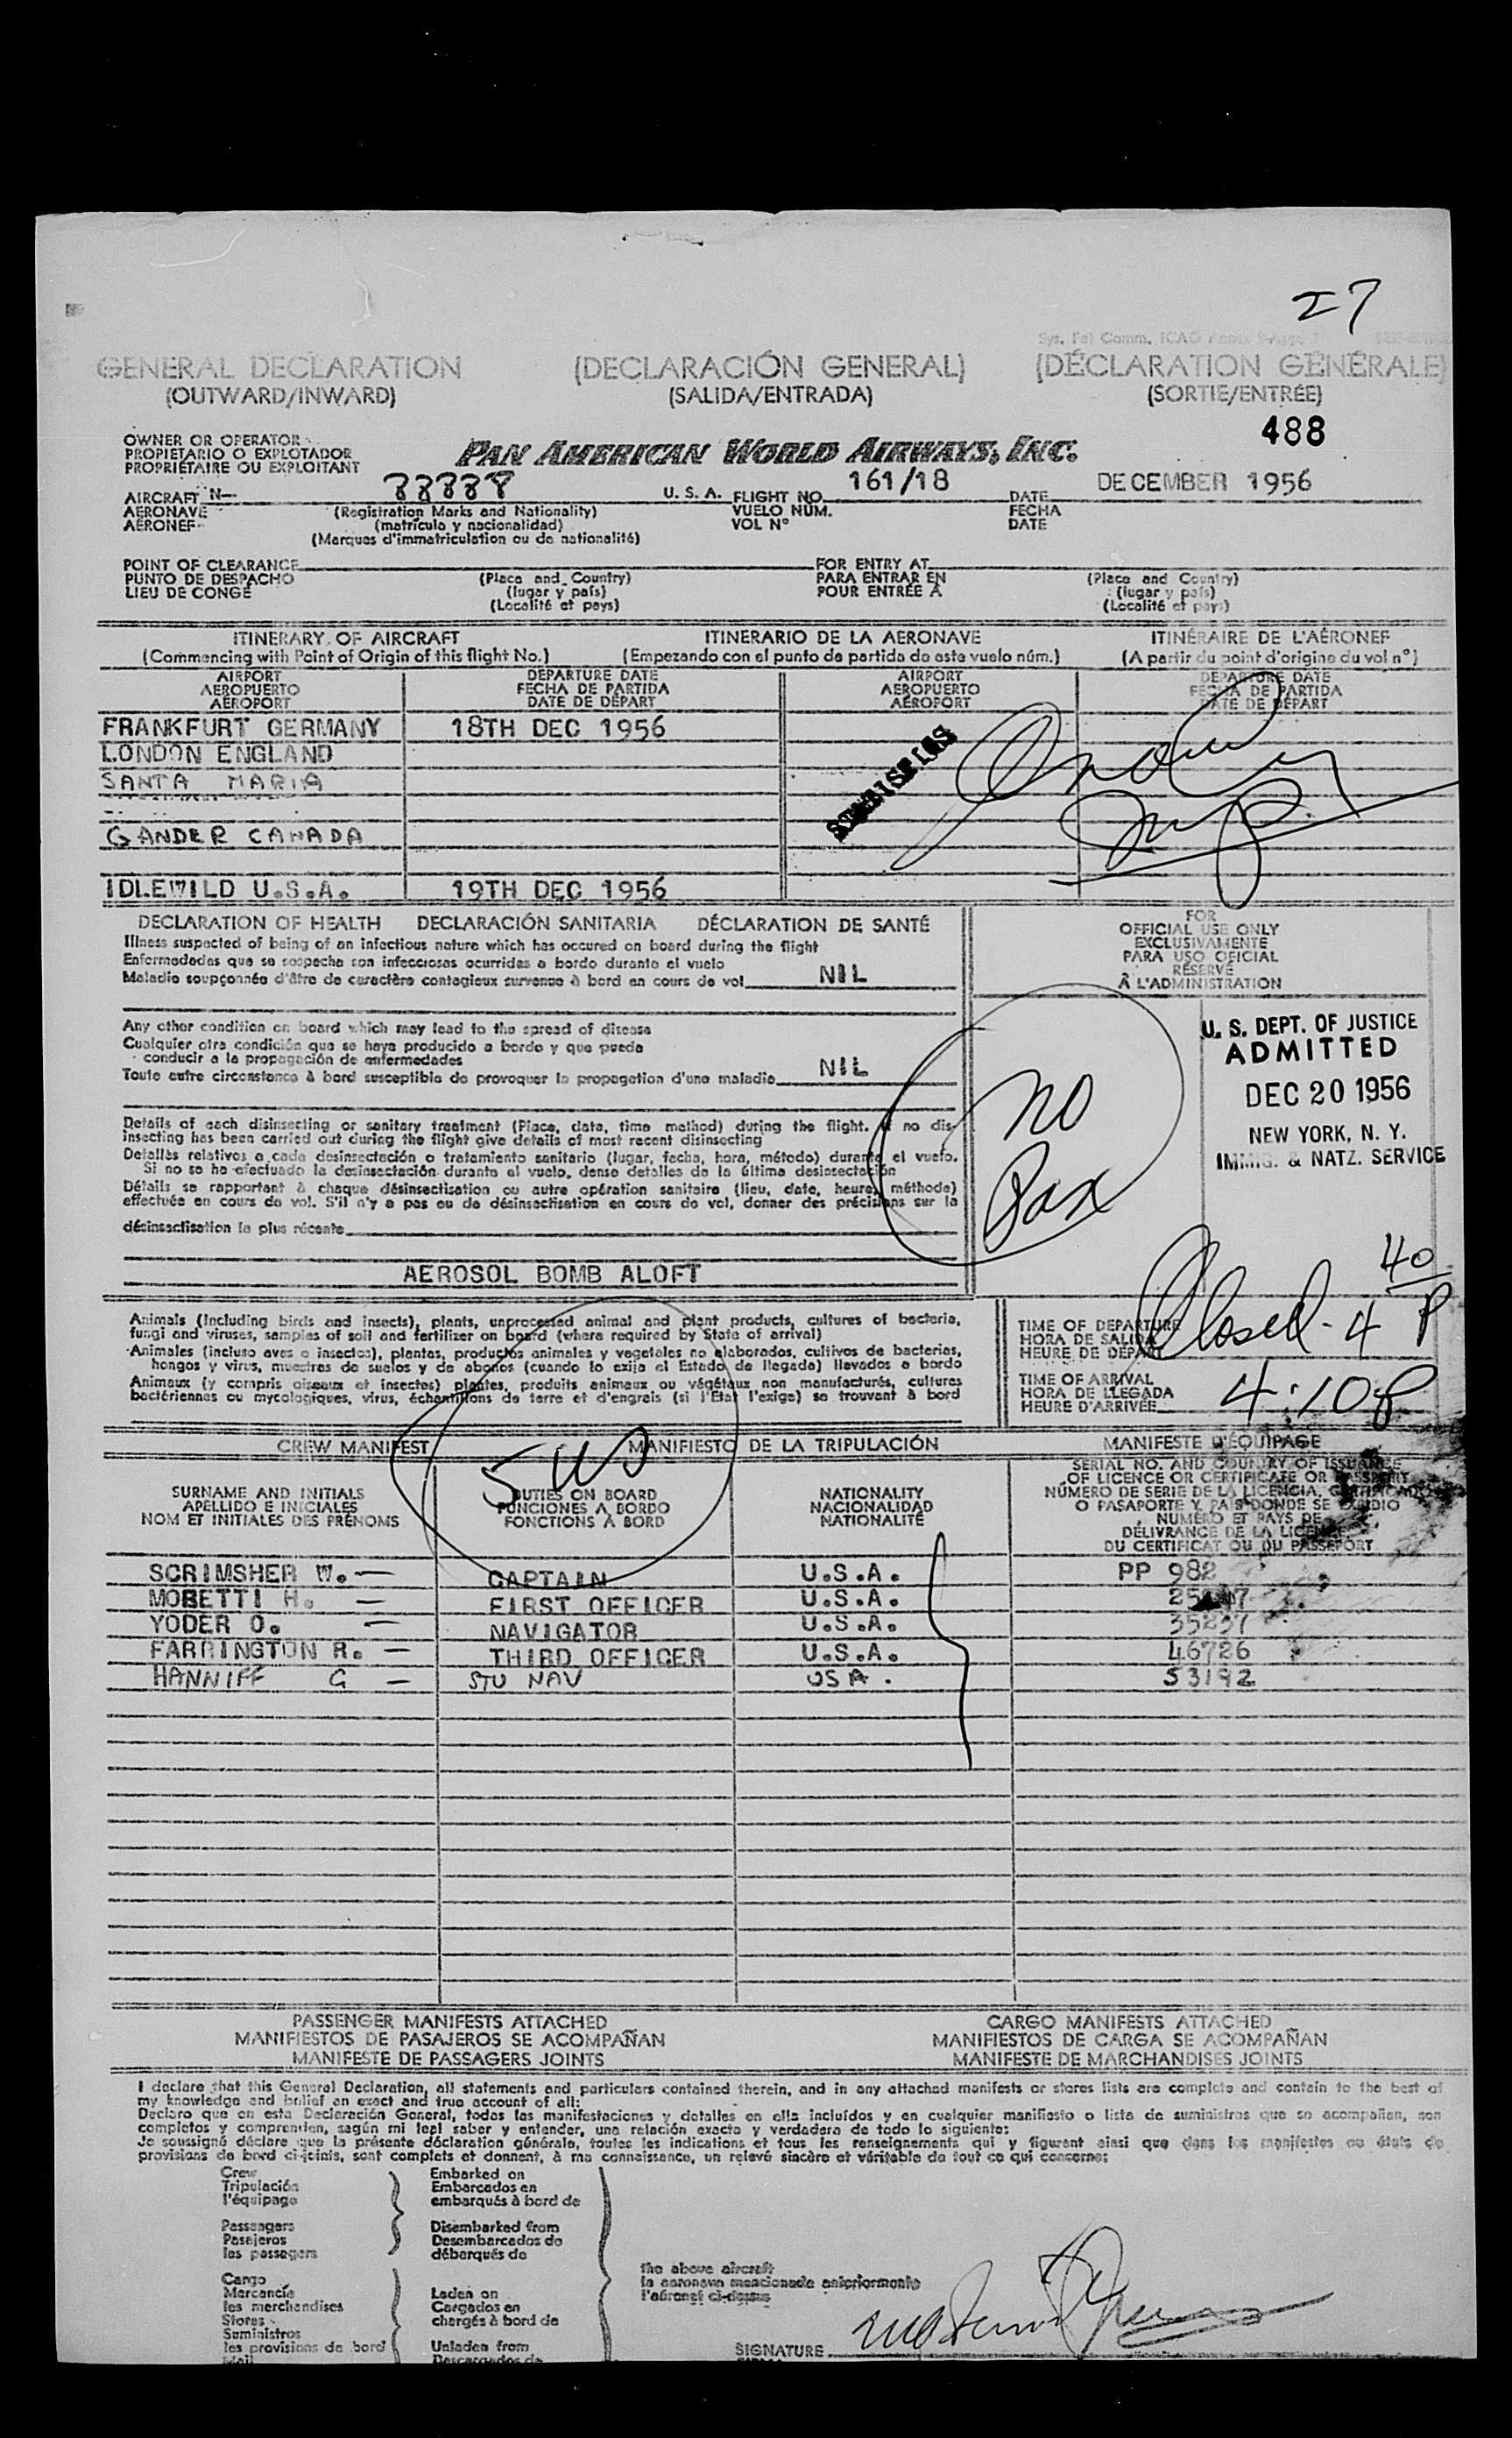 27
GENERAL DECLARATION (DECLARACIÓN GENERAL) (DÉCLARATION GÉNÉRALE)
(OUTWARD/INWARD) (SALIDA/ENTRADA) (SORTIE/ENTRÉE)
488
OWNER OR OPERATOR
PROPIETARIO O EXPLOTADOR
PROPRIÉTAIRE OU EXPLOITANT
PAN AMERICAN WORLD AIRWAYS, INC.
AIRCRAFT N- 88888 U. S. A. FLIGHT NO. 161/18 DATE DECEMBER 1956
AERONAVE (Registration Marks and Nationality) VUELO NÚM. FECHA
AÉRONEF (matrícula y nacionalidad) VOL Nº DATE
(Marques d'immatriculation ou de nationalité)
POINT OF CLEARANCE FOR ENTRY AT
PUNTO DE DESPACHO (Place and Country) PARA ENTRAR EN (Place and Country)
LIEU DE CONGÉ (lugar y país) POUR ENTRÉE À (lugar y país)
(Localité et pays) (Localité et pays)
ITINERARY OF AIRCRAFT ITINERARIO DE LA AERONAVE ITINÉRAIRE DE L'AÉRONEF
(Commencing with Point of Origin of this flight No.) (Empezando con el punto de partida de este vuelo núm.) (A partir du point d'origine du vol nº)
AIRPORT DEPARTURE DATE AIRPORT DEPARTURE DATE
AEROPUERTO FECHA DE PARTIDA AEROPUERTO FECHA DE PARTIDA
AÉROPORT DATE DE DÉPART AÉROPORT DATE DE DÉPART
FRANKFURT GERMANY 18TH DEC 1956
LONDON ENGLAND
SANTA MARIA
GANDER CANADA
IDLEWILD U.S.A. 19TH DEC 1956
DECLARATION OF HEALTH DECLARACIÓN SANITARIA DÉCLARATION DE SANTÉ
Illness suspected of being of an infectious nature which has occured on board during the flight
Enfermedades que se sospecha son infecciosas ocurridas a bordo durante el vuelo
Maladie soupçonnée d'être de caractère contagieux survenue à bord en cours de vol NIL
Any other condition on board which may lead to the spread of disease
Cualquier otra condición que se haya producido a bordo y que pueda
conducir a la propagación de enfermedades
Toute autre circonstance à bord susceptible de provoquer la propagation d'une maladie NIL
Details of each disinsecting or sanitary treatment (Place, date, time method) during the flight. If no dis-
insecting has been carried out during the flight give details of most recent disinsecting
Detalles relativos a cada desinsectación o tratamiento sanitario (lugar, fecha, hora, método) durante el vuelo.
Si no se ha efectuado la desinsectación durante el vuelo, dense detalles de la última desinsectación
Détails se rapportant à chaque désinsectisation ou autre opération sanitaire (lieu, date, heure, méthode)
effectuée en cours de vol. S'il n'y a pas eu de désinsectisation en cours de vol, donner des précisions sur la
désinsectisation la plus récente
AEROSOL BOMB ALOFT
FOR
OFFICIAL USE ONLY
EXCLUSIVAMENTE
PARA USO OFICIAL
RÉSERVÉ
À L'ADMINISTRATION
U. S. DEPT. OF JUSTICE
ADMITTED
DEC 20 1956
NEW YORK, N. Y.
IMMIG. & NATZ. SERVICE
NO
Pax
Animals (Including birds and insects), plants, unprocessed animal and plant products, cultures of bacteria,
fungi and viruses, samples of soil and fertilizer on board (where required by State of arrival)
Animales (incluso aves e insectos), plantas, productos animales y vegetales no elaborados, cultivos de bacterias,
hongos y virus, muestras de suelos y de abonos (cuando lo exija el Estado de llegada) llevados a bordo
Animaux (y compris oiseaux et insectes) plantes, produits animaux ou végétaux non manufacturés, cultures
bactériennes ou mycologiques, virus, échantillons de terre et d'engrais (si l'Etat l'exige) se trouvant à bord
TIME OF DEPARTURE
HORA DE SALIDA
HEURE DE DÉPART
Closed - 4 40 P
TIME OF ARRIVAL
HORA DE LLEGADA
HEURE D'ARRIVÉE 4:10 P
CREW MANIFEST MANIFIESTO DE LA TRIPULACIÓN MANIFESTE D'ÉQUIPAGE
5 US
SURNAME AND INITIALS
APELLIDO E INICIALES
NOM ET INITIALES DES PRÉNOMS
DUTIES ON BOARD
FUNCIONES A BORDO
FONCTIONS À BORD
NATIONALITY
NACIONALIDAD
NATIONALITÉ
SERIAL NO. AND COUNTRY OF ISSUANCE
OF LICENCE OR CERTIFICATE OR PASSPORT
NÚMERO DE SERIE DE LA LICENCIA, CERTIFICADO
O PASAPORTE Y PAÍS DONDE SE EXPIDIO
NUMÉRO ET PAYS DE
DÉLIVRANCE DE LA LICENCE
DU CERTIFICAT OU DU PASSEPORT
SCRIMSHER W. — CAPTAIN U.S.A. PP 982
MORETTI H. — FIRST OFFICER U.S.A.
YODER O. — NAVIGATOR U.S.A. 35237
FARRINGTON R. — THIRD OFFICER U.S.A. 46726
HANNIFF G — STU NAV USA. 53192
PASSENGER MANIFESTS ATTACHED CARGO MANIFESTS ATTACHED
MANIFIESTOS DE PASAJEROS SE ACOMPAÑAN MANIFIESTOS DE CARGA SE ACOMPAÑAN
MANIFESTE DE PASSAGERS JOINTS MANIFESTE DE MARCHANDISES JOINTS
I declare that this General Declaration, all statements and particulars contained therein, and in any attached manifests or stores lists are complete and contain to the best of
my knowledge and belief an exact and true account of all:
Declaro que en esta Declaración General, todas las manifestaciones y detalles en ella incluídos y en cualquier manifiesto o lista de suministros que se acompañan, son
completos y comprenden, según mi leal saber y entender, una relación exacta y verdadera de todo lo siguiente:
Je soussigné déclare que la présente déclaration générale, toutes les indications et tous les renseignements qui y figurent ainsi que dans les manifestes ou états de
provisions de bord ci-joints, sont complets et donnent, à ma connaissance, un relevé sincère et véritable de tout ce qui concerne:
Crew Embarked on
Tripulación Embarcados en
l'équipage embarqués à bord de
Passengers Disembarked from
Pasajeros Desembarcados de
les passagers débarqués de
the above aircraft
la aeronave mencionada anteriormente
l'aéronef ci-dessus
Cargo
Mercancía Laden on
les merchandises Cargados en
Stores chargés à bord de
Suministros
les provisions de bord Unladen from
Mail Descargados de
SIGNATURE